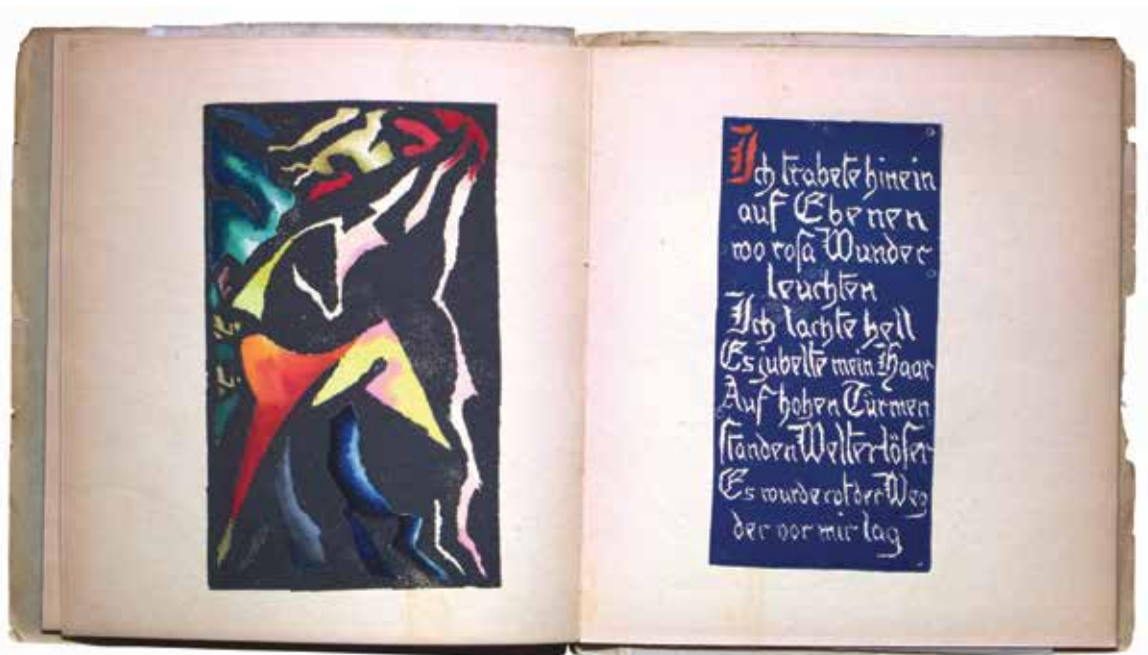 Ich trabete hinein
auf Ebenen
wo rosa Wunder
leuchten
Ich lachte hell
Es jubelte mein Haar
Auf hohen Türmen
standen Welterlöser
Es wurde rot der Weg
der vor mir lag